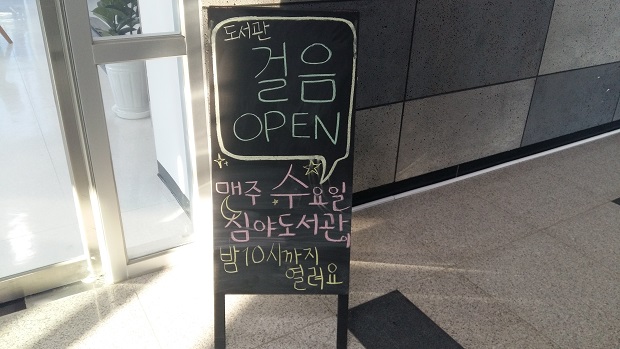 도서관
걸음
OPEN
맥주 수요일
심야도서관이
밤 10시까지
열려요